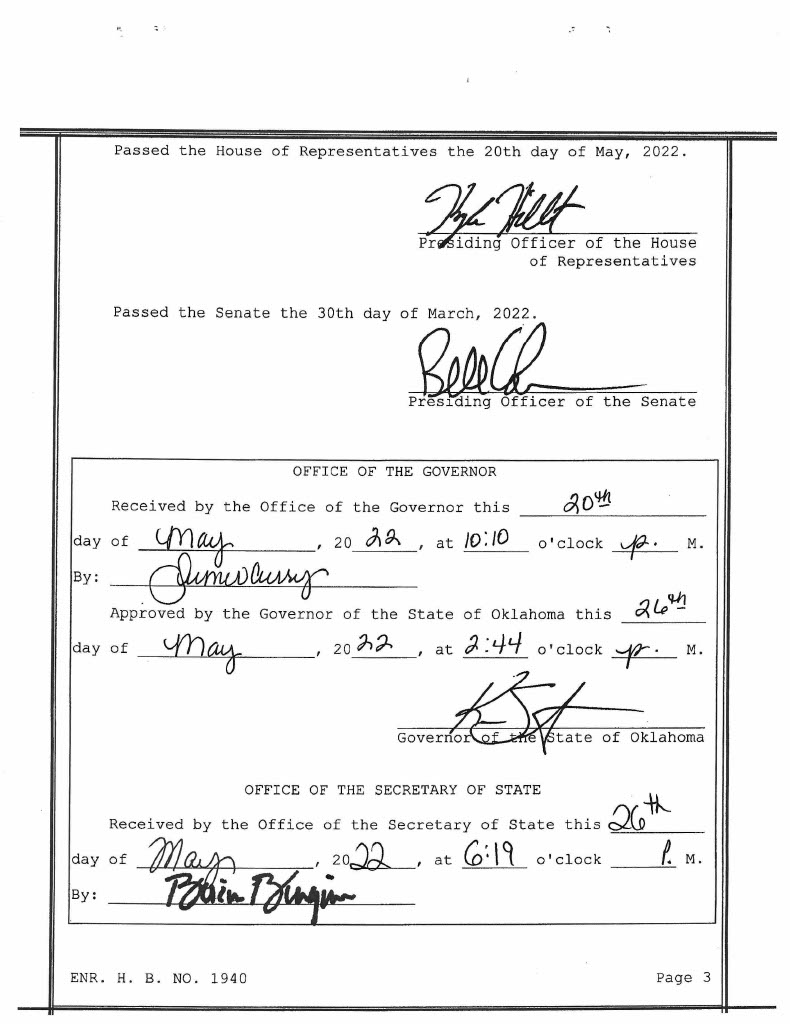 Passed the House of Representatives the 20th day of May, 2022.
Presiding Officer of the House
of Representatives
Passed the Senate the 30th day of March, 2022.
Presiding Officer of the Senate
OFFICE OF THE GOVERNOR
Received by the Office of the Governor this 20th
day of May, 2022, at 10:10 o'clock p. M.
By:
Approved by the Governor of the State of Oklahoma this 26th
day of May, 2022, at 2:44 o'clock p. M.
Governor of the State of Oklahoma
OFFICE OF THE SECRETARY OF STATE
Received by the Office of the Secretary of State this 26th
day of May, 2022, at 6:19 o'clock P. M.
By:
ENR. H. B. NO. 1940 Page 3